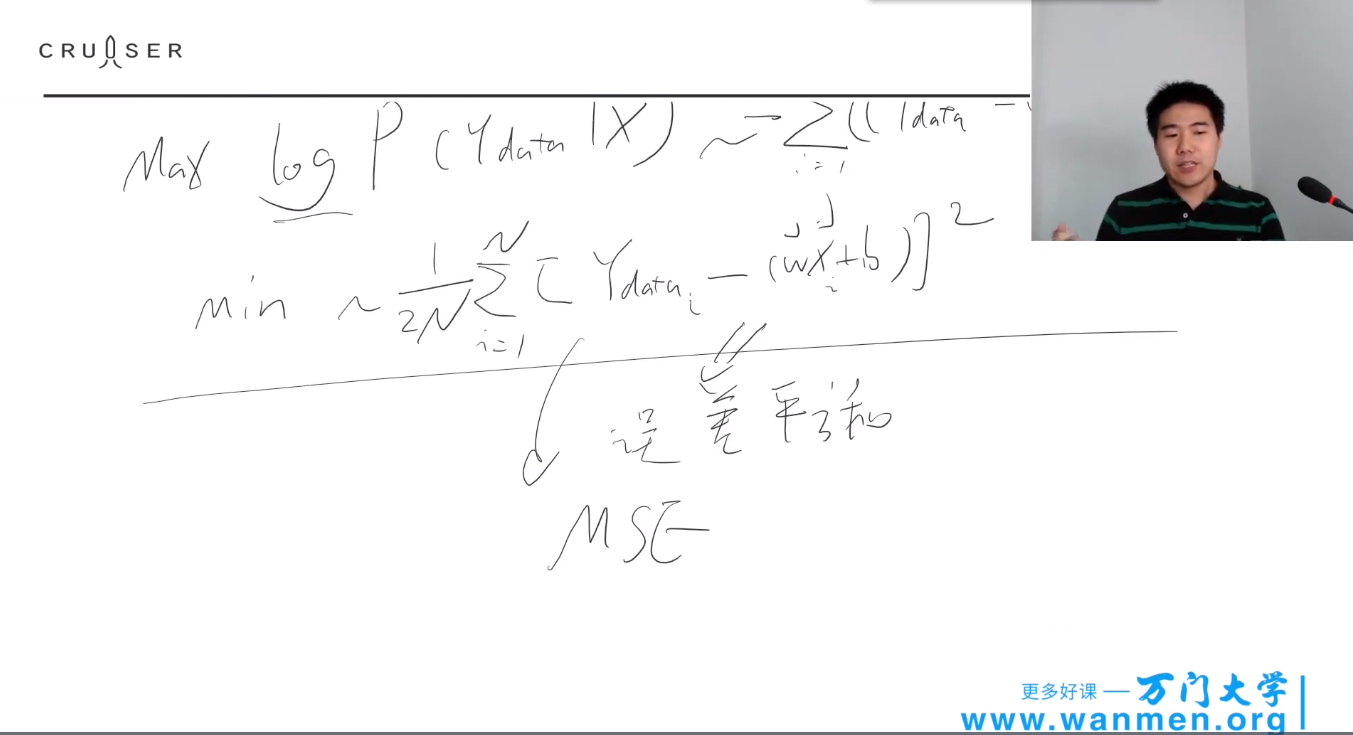 CRUISER
Max log P (Ydata | X) ~ - ∑ i=1 (( Ydata -
min ~ 1/2N ∑ i=1 N [ Ydata i - (wX i + b) ]²
误差平方和
MSE
更多好课 — 万门大学
www.wanmen.org